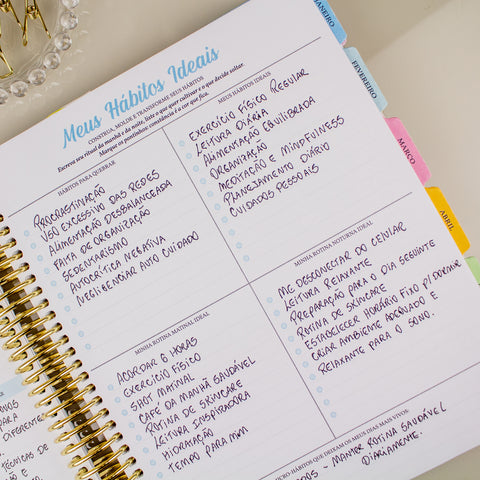 Meus Hábitos Ideais
CONSTRUA, MOLDE E TRANSFORME SEUS HÁBITOS
Escreva seu ritual da manhã e da noite, liste o que quer cultivar e o que decide soltar.
Marque os pontinhos: constância é a cor que fica.
HÁBITOS PARA QUEBRAR
PROCRASTINAÇÃO
USO EXCESSIVO DAS REDES
ALIMENTAÇÃO DESBALANCEADA
FALTA DE ORGANIZAÇÃO
SEDENTARISMO
AUTOCRÍTICA NEGATIVA
NEGLIGENCIAR AUTO CUIDADO
MEUS HÁBITOS IDEAIS
EXERCÍCIO FÍSICO REGULAR
LEITURA DIÁRIA
ALIMENTAÇÃO EQUILIBRADA
ORGANIZAÇÃO
MEDITAÇÃO E MINDFULNESS
PLANEJAMENTO DIÁRIO
CUIDADOS PESSOAIS
MINHA ROTINA MATINAL IDEAL
ACORDAR 6 HORAS
EXERCÍCIO FÍSICO
SHOT MATINAL
CAFÉ DA MANHÃ SAUDÁVEL
ROTINA DE SKINCARE
LEITURA INSPIRADORA
HIDRATAÇÃO
TEMPO PARA MIM
MINHA ROTINA NOTURNA IDEAL
ME DESCONECTAR DO CELULAR
LEITURA RELAXANTE
PREPARAÇÃO PARA O DIA SEGUINTE
ROTINA DE SKINCARE
ESTABELECER HORÁRIO FIXO P/ DORMIR
CRIAR AMBIENTE ADEQUADO E
RELAXANTE PARA O SONO.
MICRO-HÁBITOS QUE DEIXAM OS MEUS DIAS MAIS VIVOS:
- MANTER ROTINA SAUDÁVEL
DIARIAMENTE.
JANEIRO
FEVEREIRO
MARÇO
ABRIL
PARA
DIFERENTE
TÉCNICAS DE